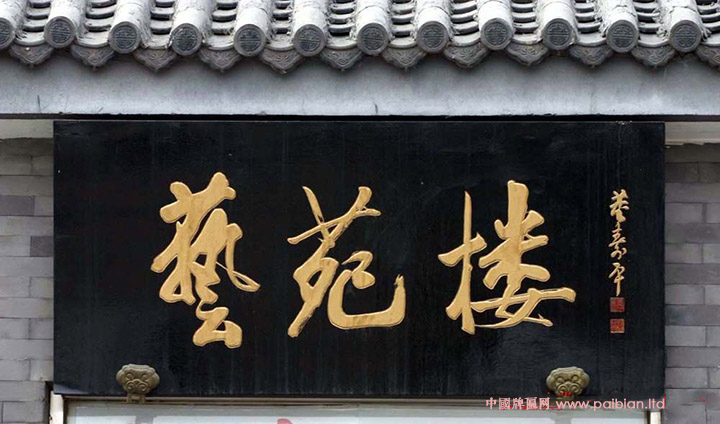 藝苑楼
董寿平
中國牌匾网 www.paibian.ltd